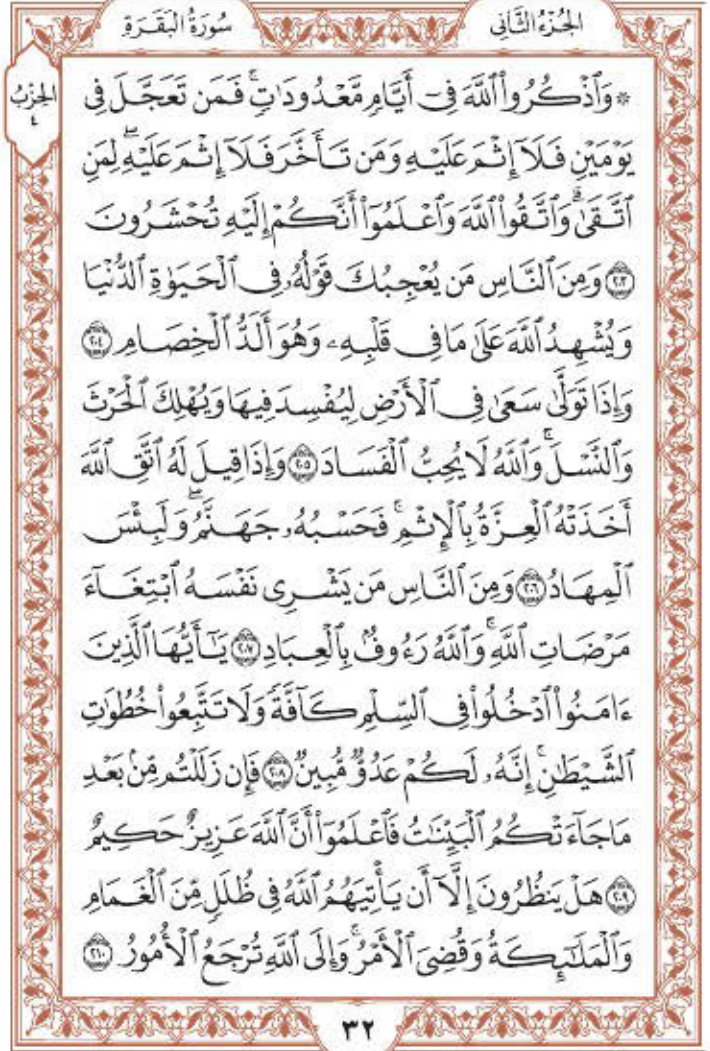 الجُزْءُ الثَّانِي
سُورَةُ الْبَقَرَةِ
الحِزْبُ
٤
۞ وَٱذْكُرُوا۟ ٱللَّهَ فِىٓ أَيَّامٍ مَّعْدُودَٰتٍ ۚ فَمَن تَعَجَّلَ فِى
يَوْمَيْنِ فَلَآ إِثْمَ عَلَيْهِ وَمَن تَأَخَّرَ فَلَآ إِثْمَ عَلَيْهِ ۖ لِمَنِ
ٱتَّقَىٰ ۗ وَٱتَّقُوا۟ ٱللَّهَ وَٱعْلَمُوٓا۟ أَنَّكُمْ إِلَيْهِ تُحْشَرُونَ
۝٢٠٣ وَمِنَ ٱلنَّاسِ مَن يُعْجِبُكَ قَوْلُهُۥ فِى ٱلْحَيَوٰةِ ٱلدُّنْيَا
وَيُشْهِدُ ٱللَّهَ عَلَىٰ مَا فِى قَلْبِهِۦ وَهُوَ أَلَدُّ ٱلْخِصَامِ ۝٢٠٤
وَإِذَا تَوَلَّىٰ سَعَىٰ فِى ٱلْأَرْضِ لِيُفْسِدَ فِيهَا وَيُهْلِكَ ٱلْحَرْثَ
وَٱلنَّسْلَ ۗ وَٱللَّهُ لَا يُحِبُّ ٱلْفَسَادَ ۝٢٠٥ وَإِذَا قِيلَ لَهُ ٱتَّقِ ٱللَّهَ
أَخَذَتْهُ ٱلْعِزَّةُ بِٱلْإِثْمِ ۚ فَحَسْبُهُۥ جَهَنَّمُ ۖ وَلَبِئْسَ
ٱلْمِهَادُ ۝٢٠٦ وَمِنَ ٱلنَّاسِ مَن يَشْرِى نَفْسَهُ ٱبْتِغَآءَ
مَرْضَاتِ ٱللَّهِ ۗ وَٱللَّهُ رَءُوفٌۢ بِٱلْعِبَادِ ۝٢٠٧ يَـٰٓأَيُّهَا ٱلَّذِينَ
ءَامَنُوا۟ ٱدْخُلُوا۟ فِى ٱلسِّلْمِ كَآفَّةً وَلَا تَتَّبِعُوا۟ خُطُوَٰتِ
ٱلشَّيْطَـٰنِ ۚ إِنَّهُۥ لَكُمْ عَدُوٌّ مُّبِينٌ ۝٢٠٨ فَإِن زَلَلْتُم مِّنۢ بَعْدِ
مَا جَآءَتْكُمُ ٱلْبَيِّنَـٰتُ فَٱعْلَمُوٓا۟ أَنَّ ٱللَّهَ عَزِيزٌ حَكِيمٌ
۝٢٠٩ هَلْ يَنظُرُونَ إِلَّآ أَن يَأْتِيَهُمُ ٱللَّهُ فِى ظُلَلٍ مِّنَ ٱلْغَمَامِ
وَٱلْمَلَـٰٓئِكَةُ وَقُضِىَ ٱلْأَمْرُ ۚ وَإِلَى ٱللَّهِ تُرْجَعُ ٱلْأُمُورُ ۝٢١٠
٣٢